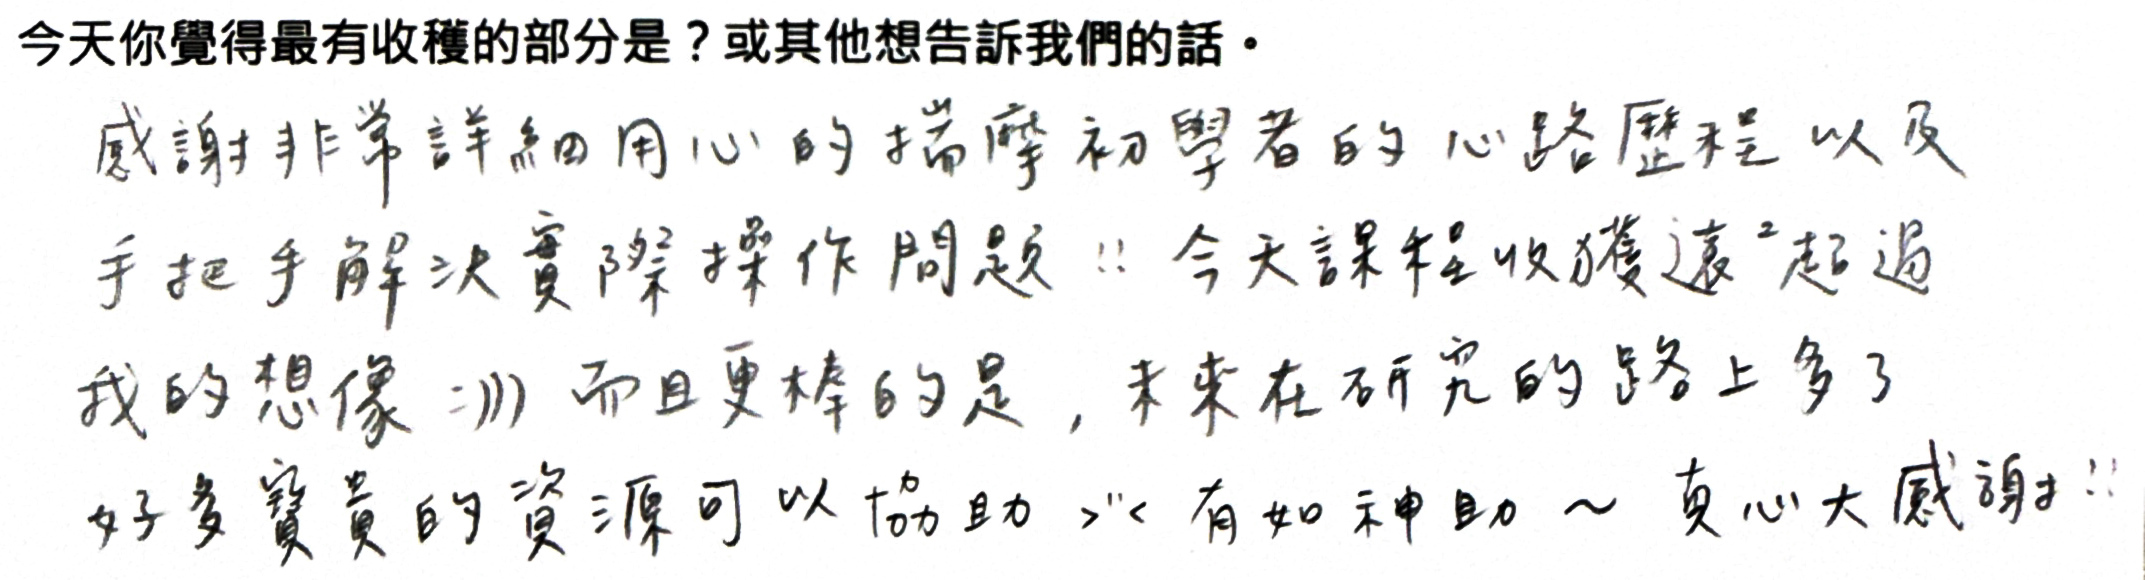 今天你覺得最有收穫的部分是？或其他想告訴我們的話。
感謝非常詳細用心的揣摩初學者的心路歷程以及
手把手解決實際操作問題!! 今天課程收獲遠²超過
我的想像 :))) 而且更棒的是，未來在研究的路上多了
好多寶貴的資源可以協助 >"< 有如神助～真心大感謝!!